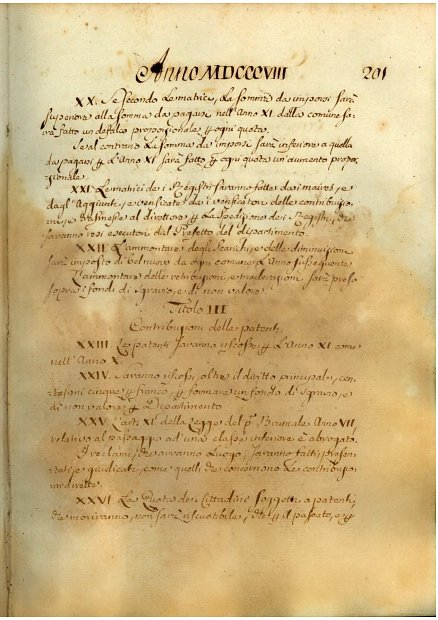 Anno MDCCCVIII 201
XX. Se secondo le matrici, la somma da imporsi sarà
superiore alla somma da pagare nell'Anno XI dalla comune sa-
rà fatto un defalco proporzionale ogni quota.
Se al contrario la somma da imporsi sarà inferiore a quella
da pagarsi l'Anno XI sarà fatto ogni quota un'aumento propor-
zionale.
XXI. Le matrici dei Registri saranno fatte dai maires, e
dagl'Aggiunti, e verificate dai verificatori delle contribuzio-
ni, e trasmesse al direttore la spedizione dei Registri, che
saranno resi esecutori dal Prefetto del dipartimento.
XXII L'ammontare degli scarichi, e delle diminuzioni
sarà imposto di bel nuovo da ogni comune l'Anno susseguente.
L'ammontare delle retribuzioni, e moderazioni sarà preso
sopra i fondi di sgravio, e di non valore.
Titolo III.
Contribuzioni delle patenti.
XXIII. Le patenti saranno riscosse l'Anno XI come
nell'Anno X.
XXIV. Saranno riscossi, oltre il diritto principale, cen-
tesimi cinque franco formare un fondo di sgravio, e
di non valore Dipartimento
XXV L'arti. XI della Legge del p. Brumale Anno VII,
relativo al passaggio ad una classe inferiore è abrogato.
I reclami, che avranno luogo, saranno fatti, presen-
tati, e giudicati, come quelli che concernono le contribuzio-
ni dirette.
XXVI La Quota dei Cittadini soggetti a patenti,
che moriranno, non sarà riscuotibile, che il passato, e